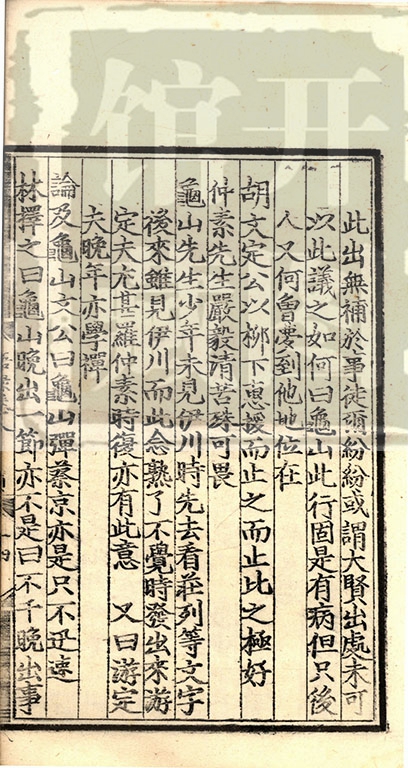 此出無補於事徒爾紛紛或謂大賢出處未可
以此議之如何曰龜山此行固是有病但只後
人又何曾夢到他地位在
胡文定公以柳下惠援而止之而止比之極好
仲素先生嚴毅清苦殊可畏
龜山先生少年未見伊川時先去看莊列等文字
後來雖見伊川而此念熟了不覺時發出來游
定夫尤甚羅仲素時復亦有此意 又曰游定
夫晚年亦學禪
論及龜山文公曰龜山彈蔡京亦是只不迅速
林擇之曰龜山晚出一節亦不是曰不干晚出事